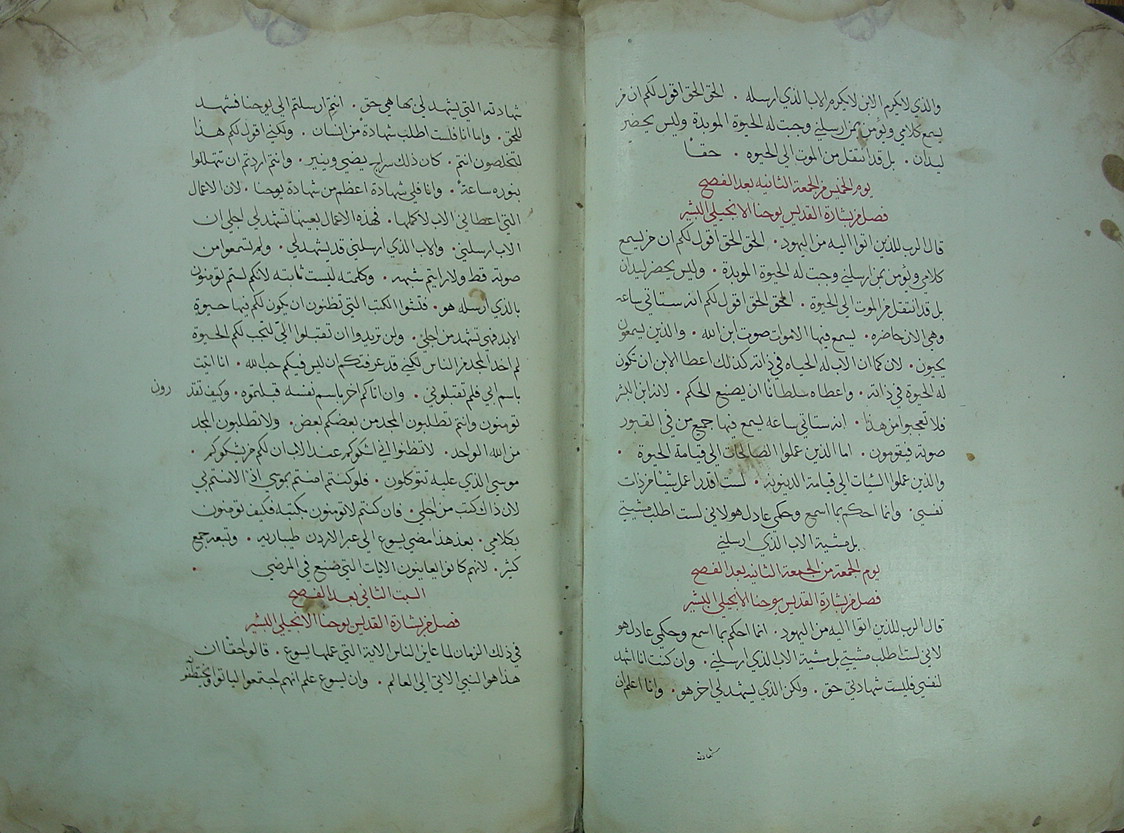 والذي لا يكرم الابن لا يكرم الاب الذي ارسله . الحق الحق اقول لكم ان من
يسمع كلامي ويؤمن بمن ارسلني وجبت له الحيوة الموبدة وليس يحضر
ليدان . بل قد انتقل من الموت الى الحيوة . حقا
يوم الخميس من الجمعة الثانيه بعد الفصح
فصل من بشارة القديس يوحنا الانجيلي البشير
قال الرب للذين اتوا اليه من اليهود . الحق الحق اقول لكم ان من يسمع
كلامي ويومن بمن ارسلني وجبت له الحيوة الموبدة . وليس يحضر ليدان
بل قد انتقل من الموت الى الحيوة . الحق الحق اقول لكم انه ستاتي ساعه
وهي الان حاضره . يسمع فيها الاموات صوت ابن الله . والذين يسمعون
يحيون . لان كما ان الاب له الحياه في ذاته كذلك اعطا الابن ان تكون
له الحيوة في ذاته . واعطاه سلطانا ان يصنع الحكم . لانه ابن البشر
فلا تعجبوا من هذا . انه ستاتي ساعه يسمع فيها جميع من في القبور
صوته فيقومون . اما الذين عملوا الصالحات الى قيامة الحيوة .
والذين عملوا السيات الى قيامة الدينونه . لست اقدر اعمل شيئا من ذات
نفسي . وانما احكم بما اسمع وحكمي عادل هو لاني لست اطلب مشيتي
بل مشية الاب الذي ارسلني
يوم الجمعة من الجمعة الثانيه بعد الفصح
فصل من بشارة القديس يوحنا الانجيلي البشير
قال الرب للذين اتوا اليه من اليهود . انما احكم بما اسمع وحكمي عادل هو
لاني لست اطلب مشيتي بل مشية الاب الذي ارسلني . وان كنت انا اشهد
لنفسي فليست شهادتي حق . ولكن الذي يشهد لي اخر هو . وانا اعلم ان
شهادته
شهادته التي يشهد لي بها هي حق . انتم ارسلتم الى يوحنا فشهد
للحق . واما انا فلست اطلب شهادة من انسان . ولكني اقول لكم هذا
لتخلصون انتم . كان ذلك سراج يضي وينير . وانتم اردتم ان تتهللوا
بنوره ساعة . وانا فلي شهادة اعظم من شهادة يوحنا . لان الاعمال
التي اعطاني الاب لاكملها . فهذه الاعمال بعينها تشهد لي اجلي ان
الاب ارسلني . والاب الذي ارسلني قد يشهد لي . ولم تسمعوا من
صوته قط ولا رايتم شبهه . وكلمته ليست ثابته لانكم لستم تومنون
بالذي ارسله هو . فتشوا الكتب التي تظنون ان يكون لكم فيها حيوة
الابد فهي تشهد من اجلي . ولن تريدوا ان تقبلوا الي لتجب لكم الحيوة
لم اخذ المجد من الناس لكني قد عرفتكم ان ليس فيكم حب الله . انا اتيت
باسم ابي فلم تقبلوني . وان اتاكم اخر باسم نفسه قبلتموه . وكيف تقدرون
تومنون وانتم تطلبون المجد من بعضكم بعض . ولا تطلبون المجد
من الله الواحد . لا تظنوا اني اشكوكم عند الاب ان لكم من يشكوكم .
موسي الذي عليه تتوكلون . فلو كنتم امنتم بموسي اذا لامنتم بي
لان ذاك كتب من اجلي . فان كنتم لا تومنون بكتبه فكيف تومنون
بكلامي . بعد هذا مضي يسوع الى عبر الاردن طيباريه . وتبعه جمع
كثير . لانهم كانوا يعاينون الايات التي صنع في المرضي .
السبت الثاني بعد الفصح
فصل من بشارة القديس يوحنا الانجيلي البشير
في ذلك الزمان لما عاين الناس الاية التي عملها يسوع . قالوا حقا ان
هذا هو النبي الاتي الى العالم . وان يسوع علم انهم اجتمعوا لياتوا